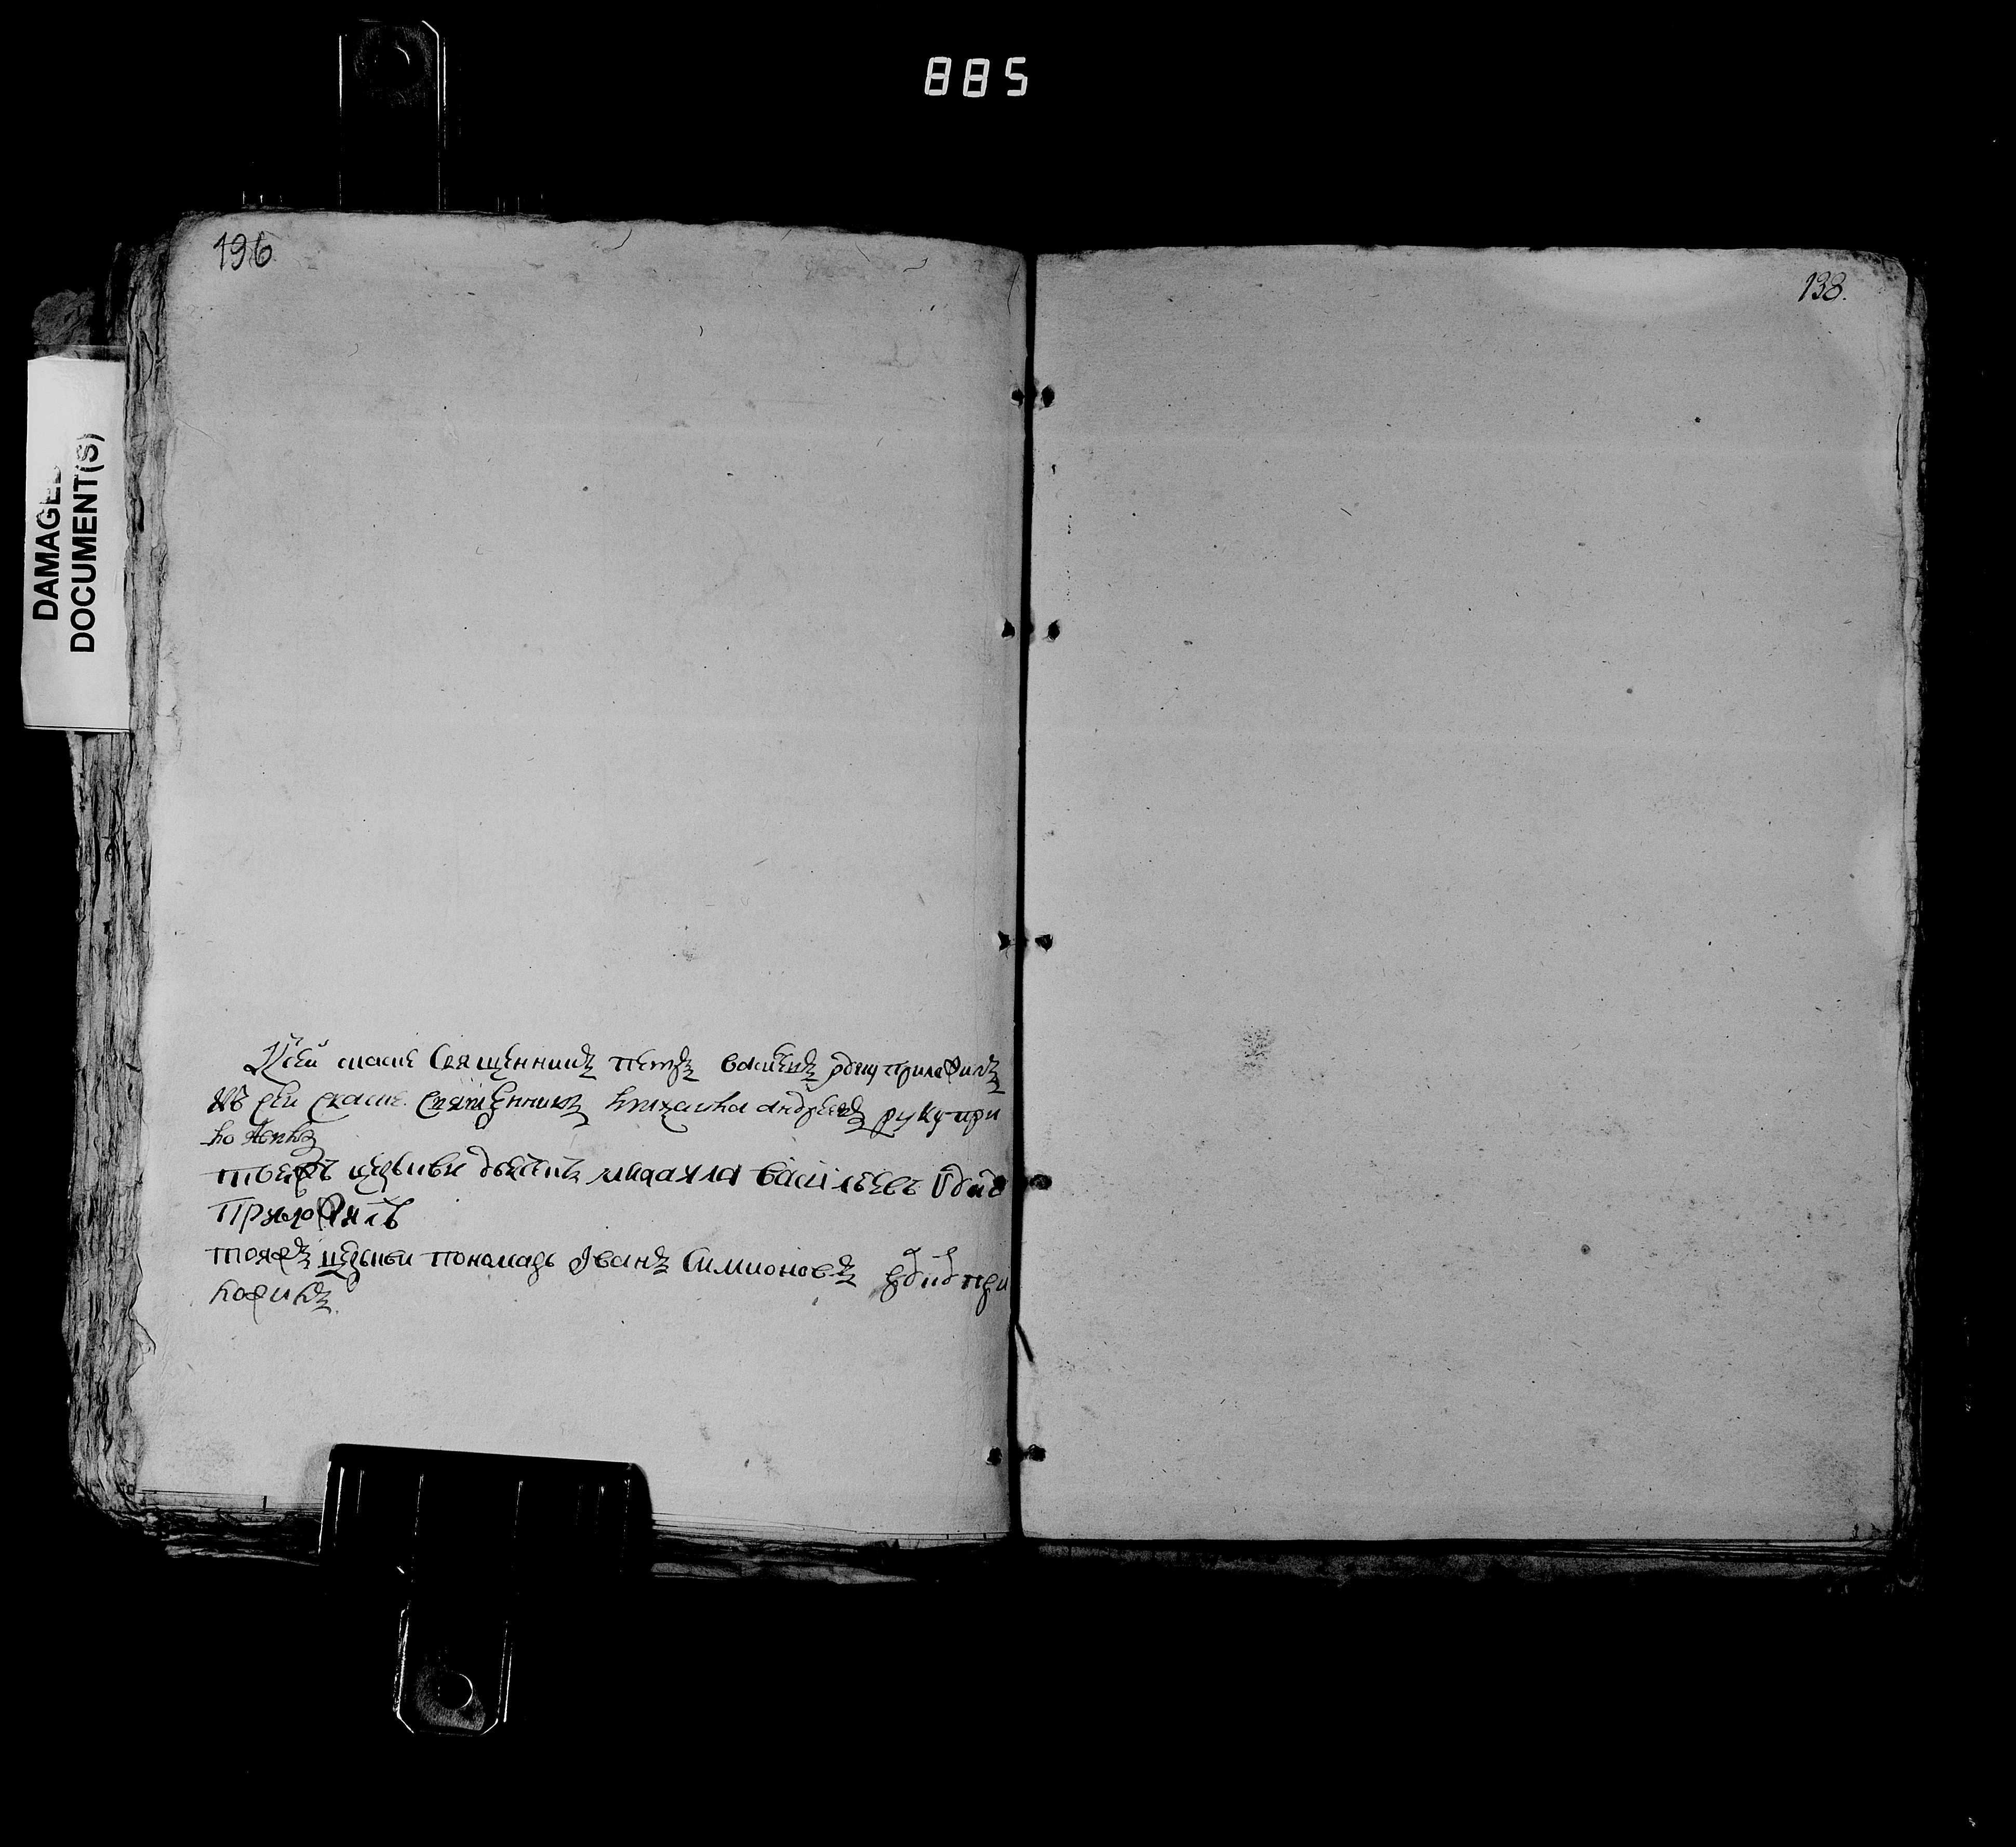 885
196
138.
DAMAGED
DOCUMENT(S)
К сей скаске Священникъ петръ васильевъ руку приложилъ
Къ сей скаске священникъ михаила андреевъ руку при
ложилъ
тоежъ церькви дьячекъ михаила васильевъ
Приложилъ
тояжъ церькви пономарь Иванъ Симионовъ руку при
ложилъ